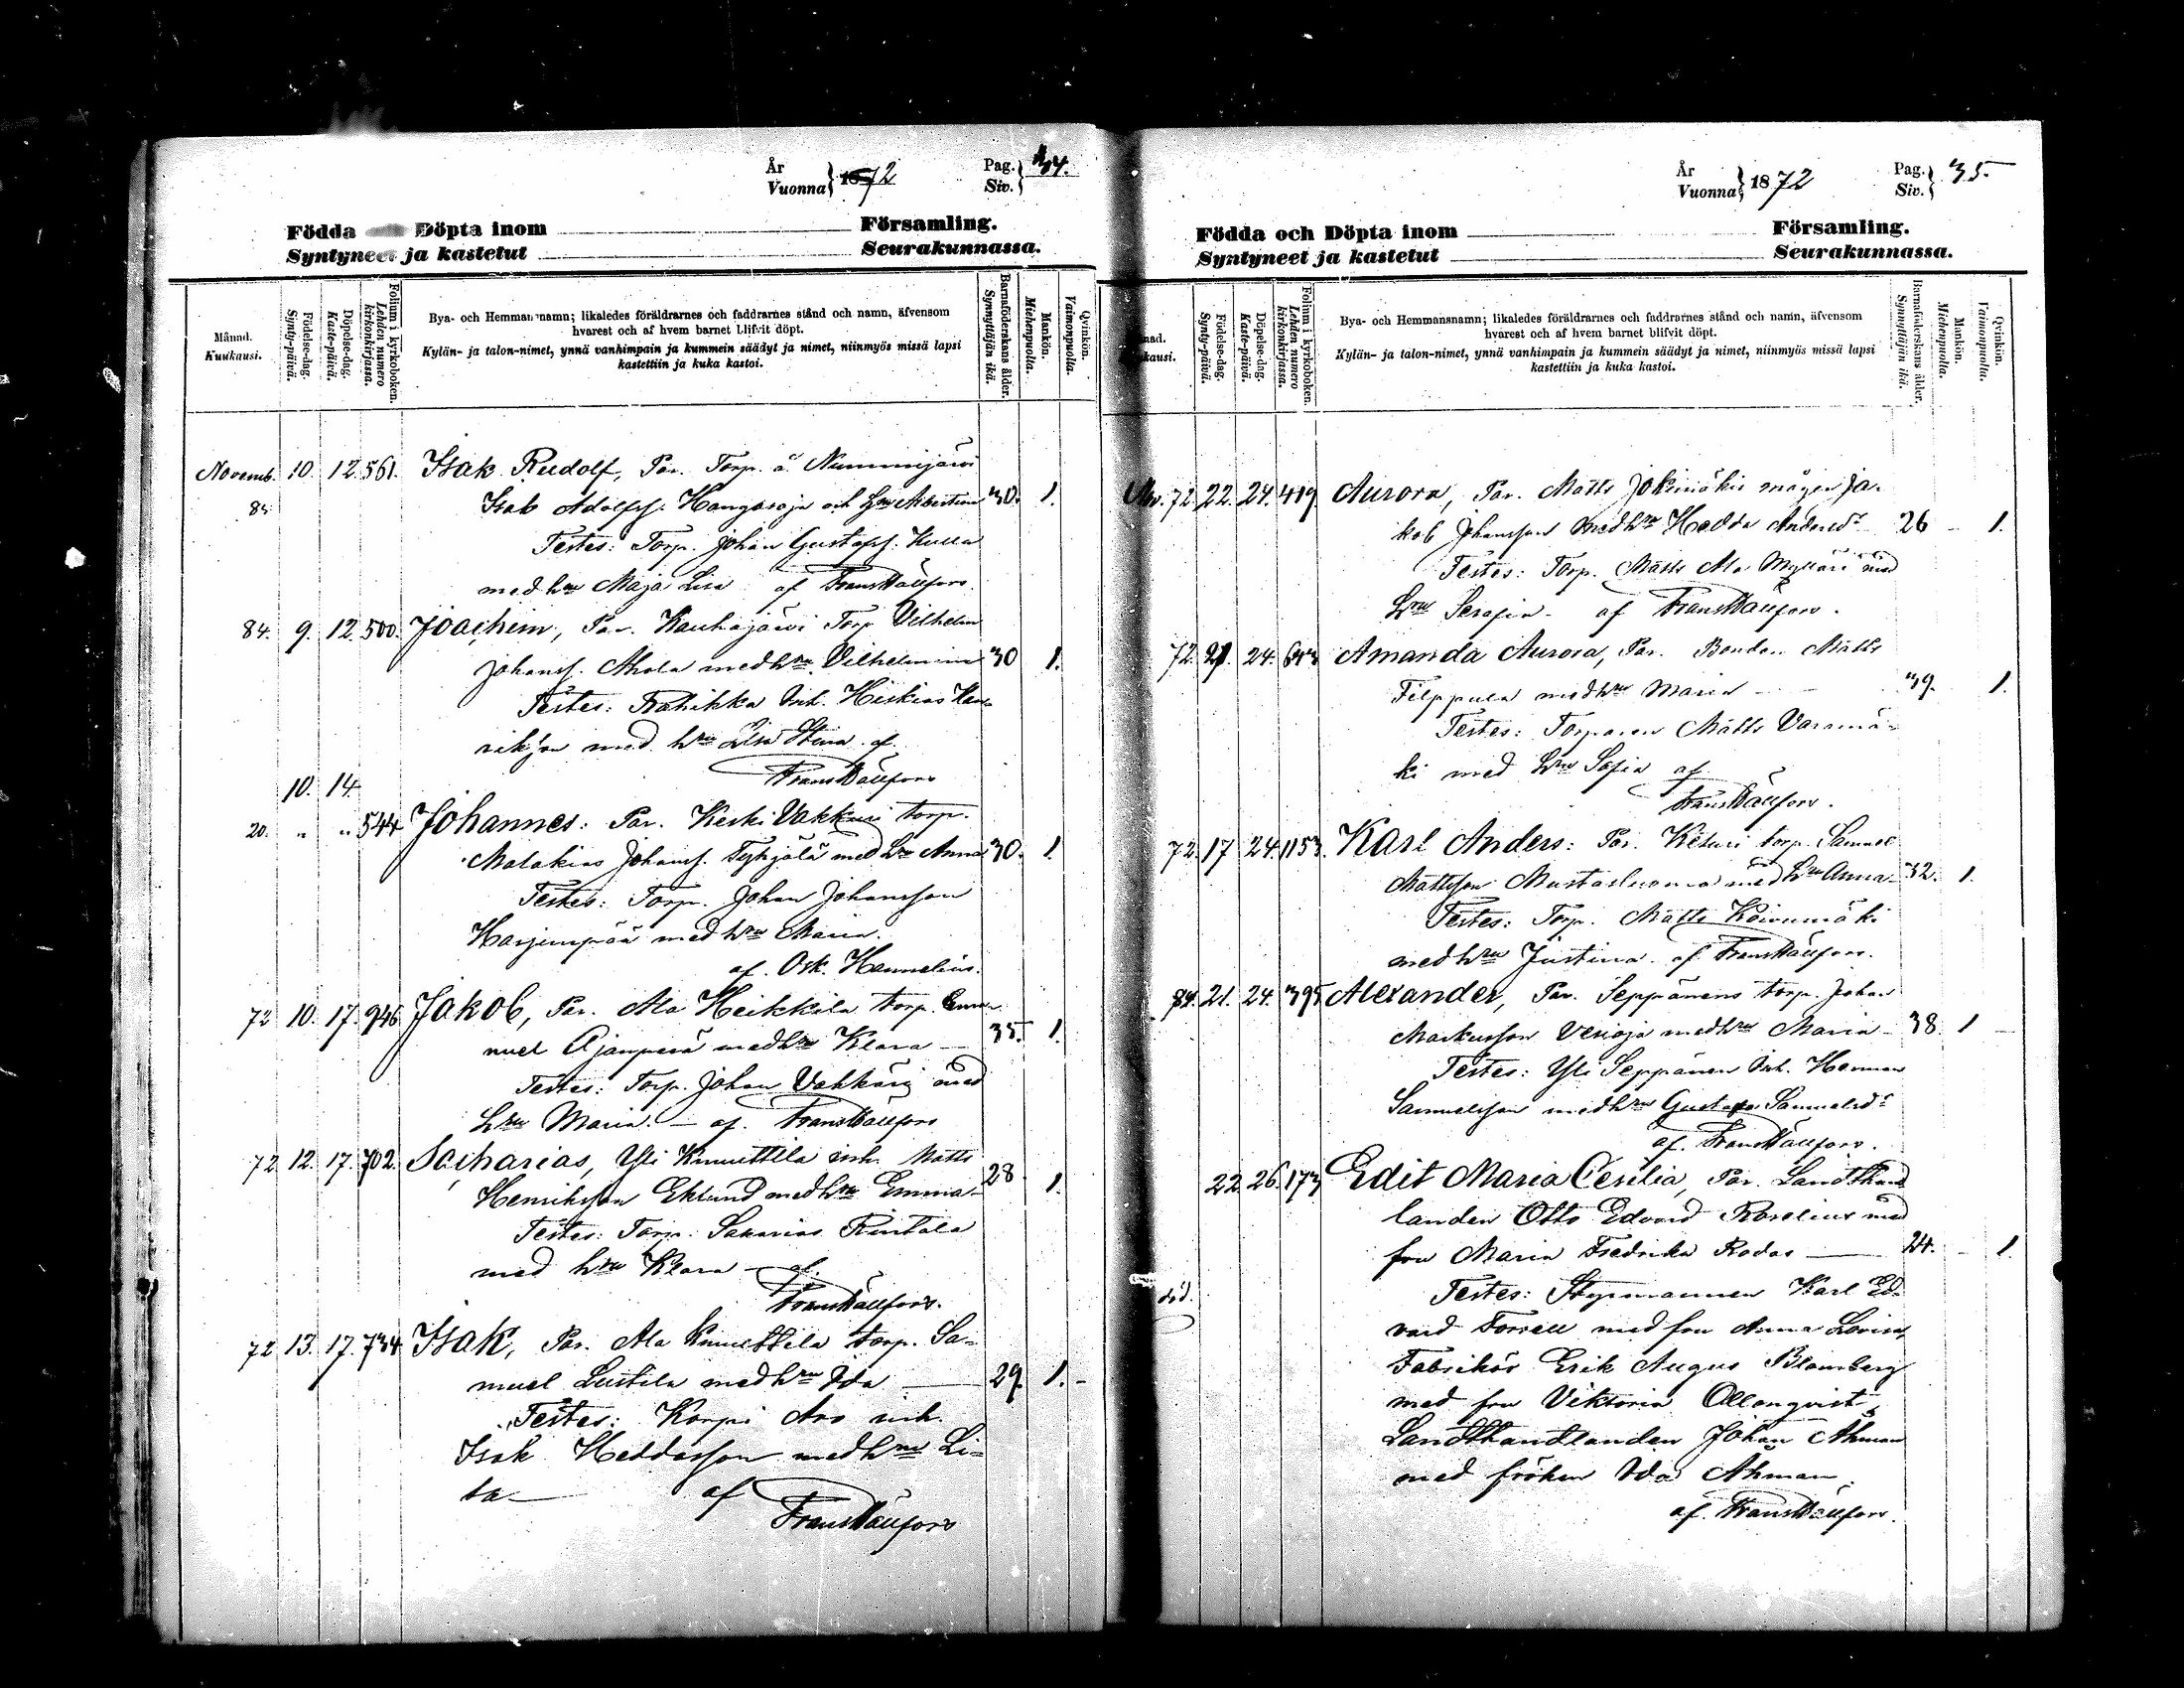 År
Vuonna } 1872
Pag.
Siv. } 34.
Födda Döpta inom Församling.
Syntyneet ja kastetut Seurakunnassa.
Månad.
Kuukausi.
Födelse-dag.
Synty-päivä.
Döpelse-dag.
Kaste-päivä.
Folium i kyrkoboken.
Lehden numero kirkonkirjassa.
Bya- och Hemmansnamn; likaledes föräldrarnes och faddrarnes stånd och namn, äfvensom
hvarest och af hvem barnet blifvit döpt.
Kylän- ja talon-nimet, ynnä vanhimpain ja kummein säädyt ja nimet, niinmyös missä lapsi
kastettiin ja kuka kastoi.
Barnaföderskans ålder.
Synnyttäjän ikä.
Mankön.
Miehenpuolia.
Qvinkön.
Vaimonpuolia.
Novemb. 10. 12. 561. Isak Rudolf, Par. Torp. å Nummijärvi
Isak Adolfss. Kangasoja och hu Albertina 30. 1.
Testes: Torp. Johan Gustafss. Kulla
med hru Maja Lisa af Frans Hällfors
84. 9. 12. 500. Joachim, Par. Kauhajärvi Torp Vilhelm
Johanss. Ahola med hru Vilhelmina 30 1.
Testes: Inh. Hiskias Hen-
rikson med hru Lisa Stina af
Frans Hällfors
10. 14.
20. " " 544 Johannes: Par. Keski Vakkuri torp.
Malakias Johanss. Tyhjälä med hru Anna 30. 1.
Testes: Torp. Johan Johansson
Harjunpää med hru Maria.
af. Osk. Hannelius.
72 10. 17. 946 Jakob, Par. Ala Heikkila torp. Emma-
nuel Ajanperä med hru Klara — 35. 1.
Testes: Torp. Johan Vakkäri med
hru Maria. — af. Frans Hällfors
72 12. 17. 702. Sacharias, Yli Knuuttila inh. Matts
Henriksson Eklund med hru Emma 28 1.
Testes: Torp. Sakarias Rintala
med hru Klara — af.
Frans Hällfors.
72 13. 17. 734 Isak, Par. Ala Knuuttila torp. Sa-
muel Lustila med hru Ida — 29 1. -
Testes: Korpi Aro inh.
Isak Heddasson med hru Li-
sa — af
Frans Hällfors
År
Vuonna } 1872
Pag.
Siv. } 35
Födda och Döpta inom Församling.
Syntyneet ja kastetut Seurakunnassa.
Födelse-dag.
Synty-päivä.
Döpelse-dag.
Kaste-päivä.
Folium i kyrkoboken.
Lehden numero kirkonkirjassa.
Bya- och Hemmansnamn; likaledes föräldrarnes och faddrarnes stånd och namn, äfvensom
hvarest och af hvem barnet blifvit döpt.
Kylän- ja talon-nimet, ynnä vanhimpain ja kummein säädyt ja nimet, niinmyös missä lapsi
kastettiin ja kuka kastoi.
Barnaföderskans ålder.
Synnyttäjän ikä.
Mankön.
Miehenpuolia.
Qvinkön.
Vaimonpuolia.
72. 22. 24. 419. Aurora, Par. Matts Jokimäkis mågen Ja-
kob Johansson med hru Hedda Andersdr 26 - 1.
Testes: Torp. Matts Ala Myllari med
hru Serafia - af Frans Hällfors.
72. 21. 24. 643 Amanda Aurora, Par. Bonden Matts
Filppula med hru Maria — 39. 1.
Testes: Torparen Matts Varamä-
ki med hru Sofia af
Frans Hällfors.
72. 17 24. 1153. Karl Anders: Par. Keturi torp. Samuel
Mattsson Mustasluoma med hru Anna 32. 1.
Testes: Torp. Matts Koivumäki
med hru Justina. af. Frans Hällfors.
84. 21. 24. 395 Alexander, Par. Seppänens torp. Johan
Markusson Vesioja med hru Maria - 38. 1
Testes: Yli Seppänen Inh. Herman
Samuelsson med hru Gustafva Samuelsdr
af. Frans Hällfors.
22. 26. 173 Edit Maria Cesilia, Par. Landthand
landen Otto Edvard Roselius med
fru Maria Fredrika Rodas — 24. - 1
Testes: Styrmannen Karl Ed-
vard Forsell med fru Anna Lovisa,
Fabrikör Erik Augus Blomberg
med fru Viktoria Ollonqvist,
Landthandlanden Johan Åhman
med fröken Ida Ahman.
af. Frans Hällfors.